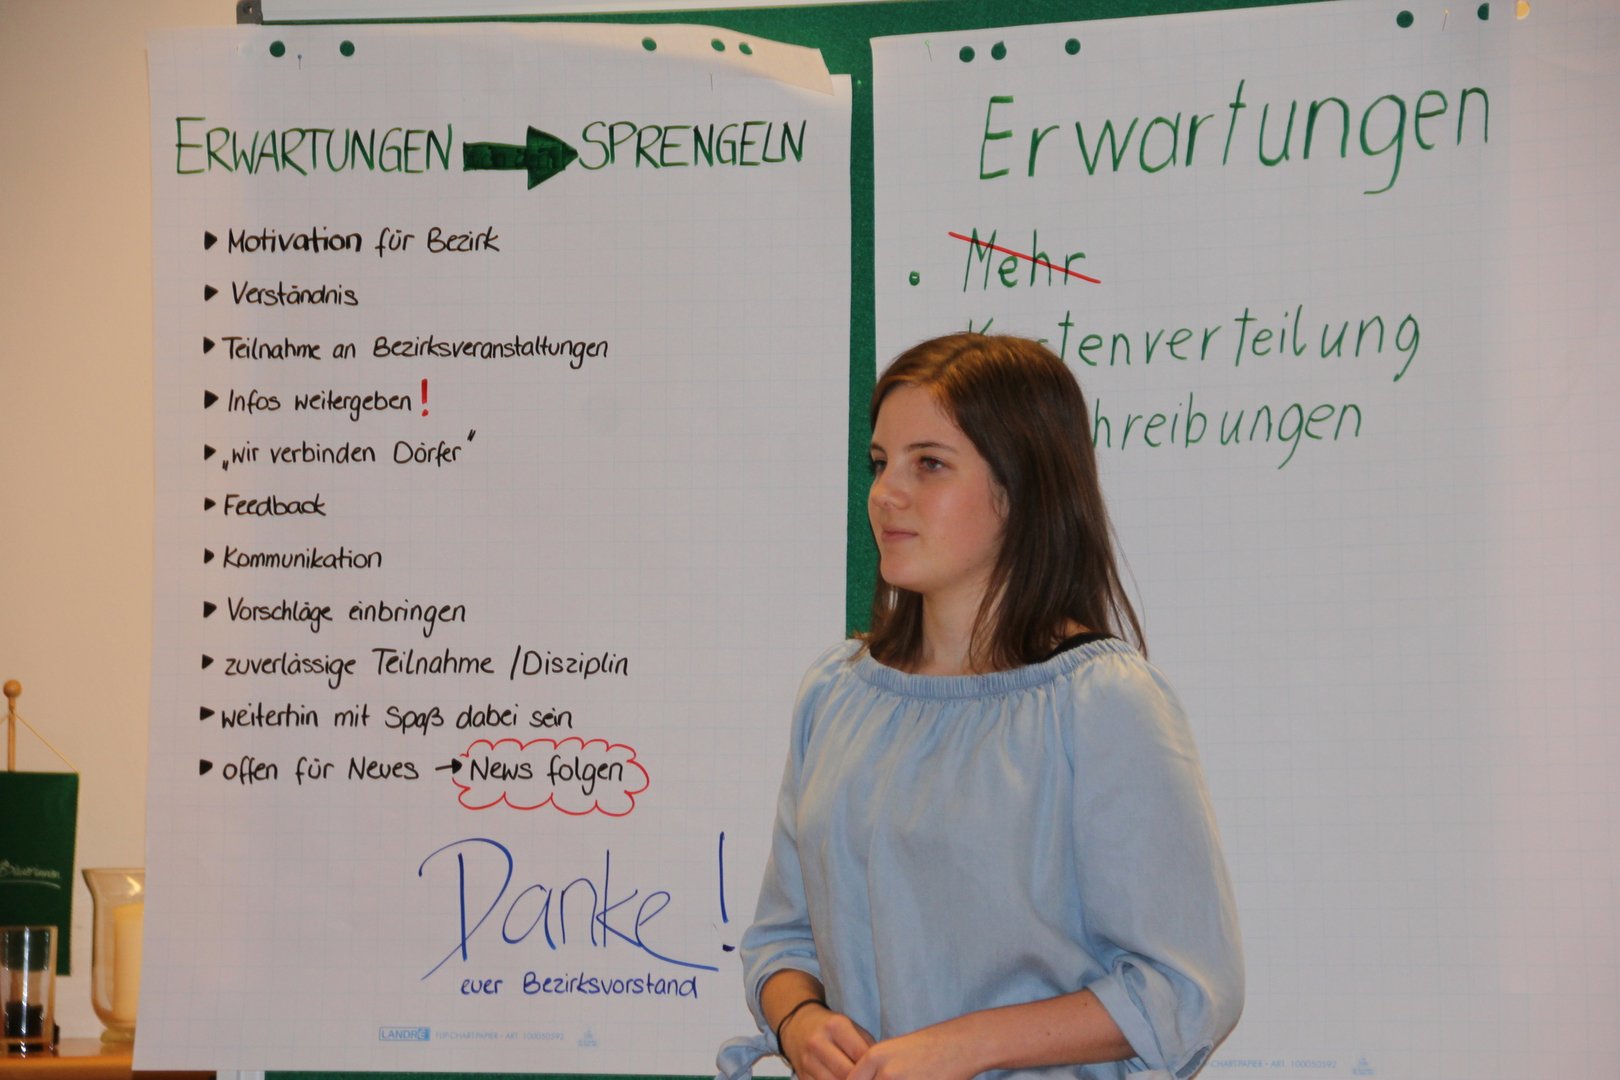 ERWARTUNGEN → SPRENGELN
▶ Motivation für Bezirk
▶ Verständnis
▶ Teilnahme an Bezirksveranstaltungen
▶ Infos weitergeben!
▶ „wir verbinden Dörfer"
▶ Feedback
▶ Kommunikation
▶ Vorschläge einbringen
▶ zuverlässige Teilnahme / Disziplin
▶ weiterhin mit Spaß dabei sein
▶ offen für Neues → News folgen
Danke!
euer Bezirksvorstand
LANDRÉ FLIP-CHARTPAPIER • ART. 100050592
Erwartungen
• Mehr
tenverteilung
hreibungen
CHARTPAPIER • ART. 100050592